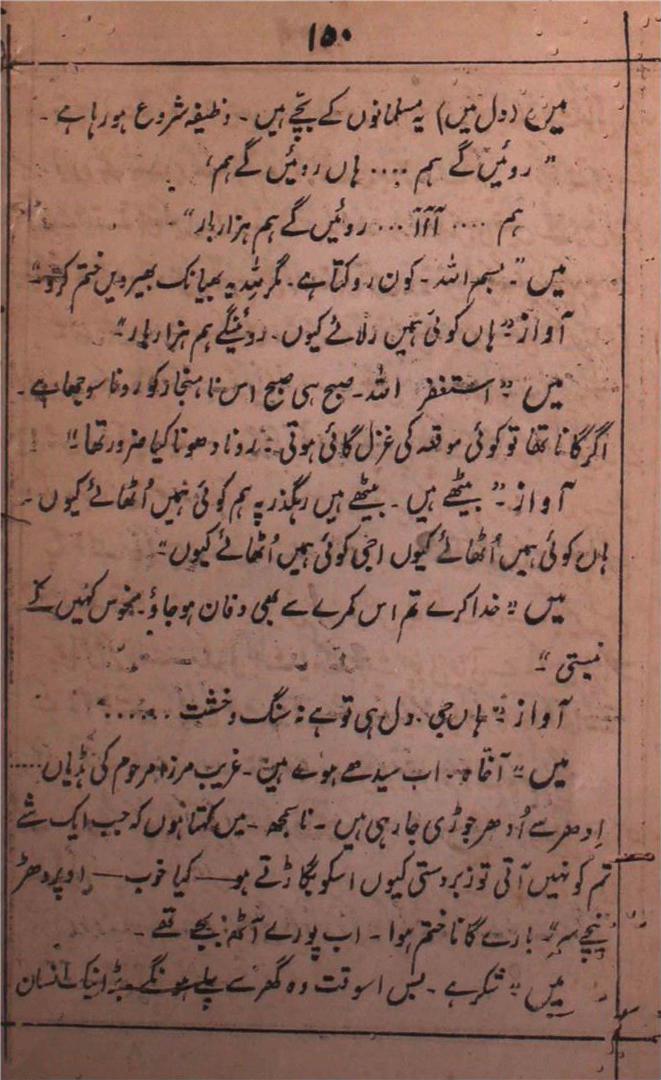 ۱۵۰
میں (دل میں) یہ مسلمانوں کے بچّے ہیں۔ وظیفہ شروع ہو رہا ہے۔
" روئیں گے ہم .... ہاں روئیں گے ہم،
ہم .... آآآ ... روئیں گے ہم ہزار بار"۔
میں "۔ بسم اللہ۔ کون روکتا ہے۔ مگر للہ یہ بھیانک بھیرویں ختم کرو"
آواز "ہاں کوئی ہمیں رلائے کیوں۔ روئینگے ہم ہزار بار"
میں " استغفر اللہ۔ صبح ہی صبح اس ناہنجار کو رونا سوجھا ہے۔
اگر گانا تھا تو کوئی موقعہ کی غزل گائی ہوتی۔ رونا دھونا کیا ضرور تھا"
آواز۔" بیٹھے ہیں۔ بیٹھے ہیں رہگذر پہ ہم کوئی ہمیں اُٹھائے کیوں۔
ہاں کوئی ہمیں اُٹھائے کیوں اجی کوئی ہمیں اُٹھائے کیوں"
میں " خدا کرے تم اس کمرے سے بھی دفان ہو جاؤ۔ منحوس کہیں کے
نیستی"
آواز " ہاں جی۔ دل ہی تو ہے نہ سنگ و خشت ......
میں " آخاہ۔ اب سیدھے ہوے ہیں۔ غریب مرزا مرحوم کی ہڈیاں .....
اِدھر سے اُدھر جوڑی جا رہی ہیں۔ ناسمجھ۔ میں کہتا ہوں کہ جب ایک شے
تم کو نہیں آتی تو زبردستی کیوں اسکو بگاڑتے ہو — کیا خوب — اوپر دھڑ
نیچے سر" بارے گانا ختم ہوا۔ اب پورے آٹھ بجے تھے۔
میں " شکر ہے۔ بس اسوقت وہ گھر سے چلے ہونگے۔ بڑے نیک انسان